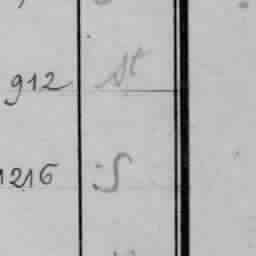 912 St
1216 S